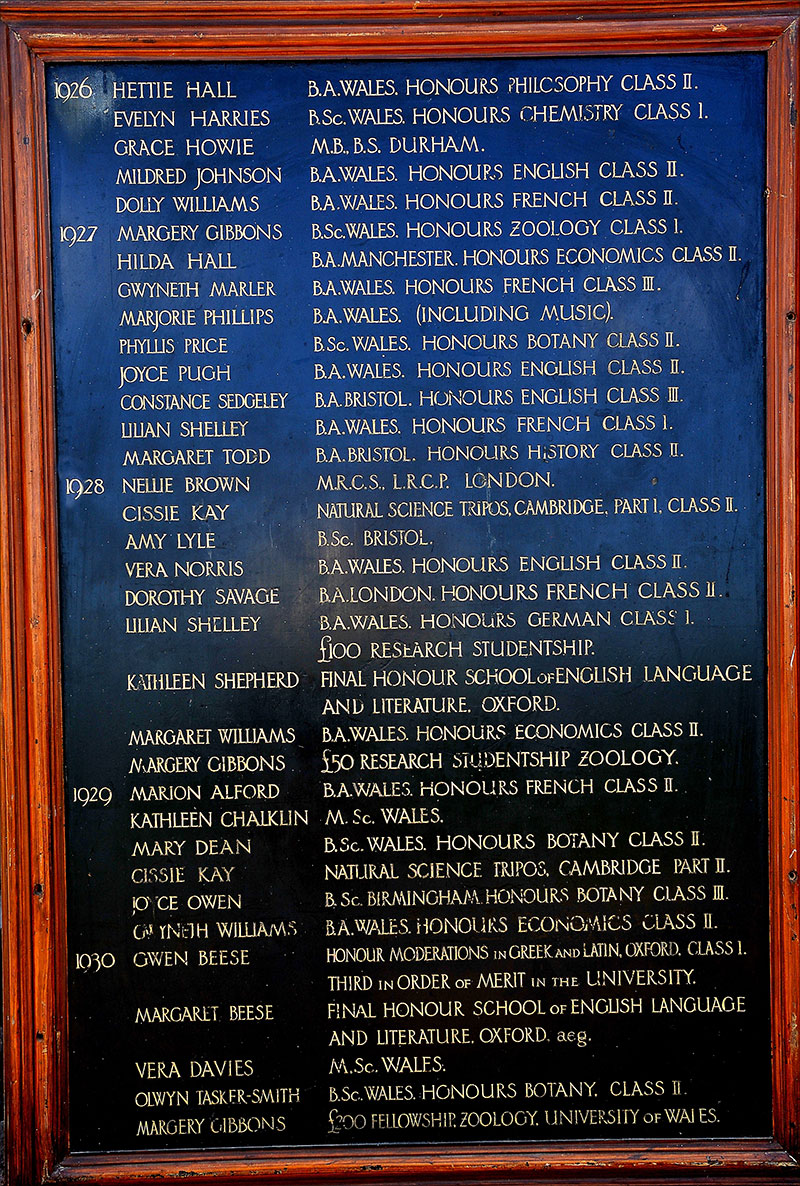 1926 HETTIE HALL B.A. WALES. HONOURS PHILOSOPHY CLASS II.
EVELYN HARRIES B.Sc. WALES. HONOURS CHEMISTRY CLASS I.
GRACE HOWIE M.B., B.S. DURHAM.
MILDRED JOHNSON B.A. WALES. HONOURS ENGLISH CLASS II.
DOLLY WILLIAMS B.A. WALES. HONOURS FRENCH CLASS II.
1927 MARGERY GIBBONS B.Sc. WALES. HONOURS ZOOLOGY CLASS I.
HILDA HALL B.A. MANCHESTER. HONOURS ECONOMICS CLASS II.
GWYNETH MARLER B.A. WALES. HONOURS FRENCH CLASS III.
MARJORIE PHILLIPS B.A. WALES. (INCLUDING MUSIC).
PHYLLIS PRICE B.Sc. WALES. HONOURS BOTANY CLASS II.
JOYCE PUGH B.A. WALES. HONOURS ENGLISH CLASS II.
CONSTANCE SEDGELEY B.A. BRISTOL. HONOURS ENGLISH CLASS III.
LILIAN SHELLEY B.A. WALES. HONOURS FRENCH CLASS I.
MARGARET TODD B.A. BRISTOL. HONOURS HISTORY CLASS II.
1928 NELLIE BROWN M.R.C.S., L.R.C.P. LONDON.
CISSIE KAY NATURAL SCIENCE TRIPOS, CAMBRIDGE, PART I, CLASS II.
AMY LYLE B.Sc. BRISTOL.
VERA NORRIS B.A. WALES. HONOURS ENGLISH CLASS II.
DOROTHY SAVAGE B.A. LONDON. HONOURS FRENCH CLASS II.
LILIAN SHELLEY B.A. WALES. HONOURS GERMAN CLASS I.
£100 RESEARCH STUDENTSHIP.
KATHLEEN SHEPHERD FINAL HONOUR SCHOOL OF ENGLISH LANGUAGE
AND LITERATURE. OXFORD.
MARGARET WILLIAMS B.A. WALES. HONOURS ECONOMICS CLASS II.
MARGERY GIBBONS £50 RESEARCH STUDENTSHIP ZOOLOGY.
1929 MARION ALFORD B.A. WALES. HONOURS FRENCH CLASS II.
KATHLEEN CHALKLIN M. Sc. WALES.
MARY DEAN B.Sc. WALES. HONOURS BOTANY CLASS II.
CISSIE KAY NATURAL SCIENCE TRIPOS. CAMBRIDGE PART II.
JOYCE OWEN B. Sc. BIRMINGHAM. HONOURS BOTANY CLASS III.
GWYNETH WILLIAMS B.A. WALES. HONOURS ECONOMICS CLASS II.
1930 GWEN BEESE HONOUR MODERATIONS IN GREEK AND LATIN, OXFORD. CLASS I.
THIRD IN ORDER OF MERIT IN THE UNIVERSITY.
MARGARET BEESE FINAL HONOUR SCHOOL OF ENGLISH LANGUAGE
AND LITERATURE. OXFORD. aeg.
VERA DAVIES M.Sc. WALES.
OLWYN TASKER-SMITH B.Sc. WALES. HONOURS BOTANY. CLASS II.
MARGERY GIBBONS £200 FELLOWSHIP. ZOOLOGY. UNIVERSITY OF WALES.